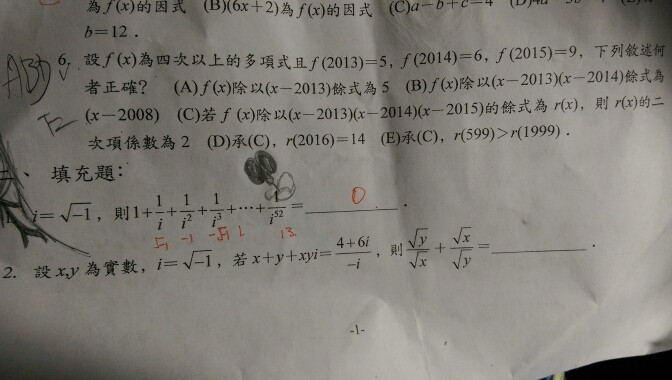 為f(x)的因式 (B)(6x+2)為f(x)的因式 (C)a-b+c=4
b=12.
ABD 6. 設f(x)為四次以上的多項式且f(2013)=5, f(2014)=6, f(2015)=9, 下列敘述何
者正確? (A)f(x)除以(x-2013)餘式為5 (B)f(x)除以(x-2013)(x-2014)餘式為
(x-2008) (C)若f(x)除以(x-2013)(x-2014)(x-2015)的餘式為r(x), 則r(x)的二
次項係數為2 (D)承(C), r(2016)=14 (E)承(C), r(599)>r(1999).
、填充題:
i=√-1, 則1+1/i+1/i²+1/i³+⋯+1/i⁵²= 0 .
√-1 -1 -√-1 1 13
2. 設x,y為實數, i=√-1, 若x+y+xyi=(4+6i)/(-i), 則√y/√x+√x/√y=________.
-1-